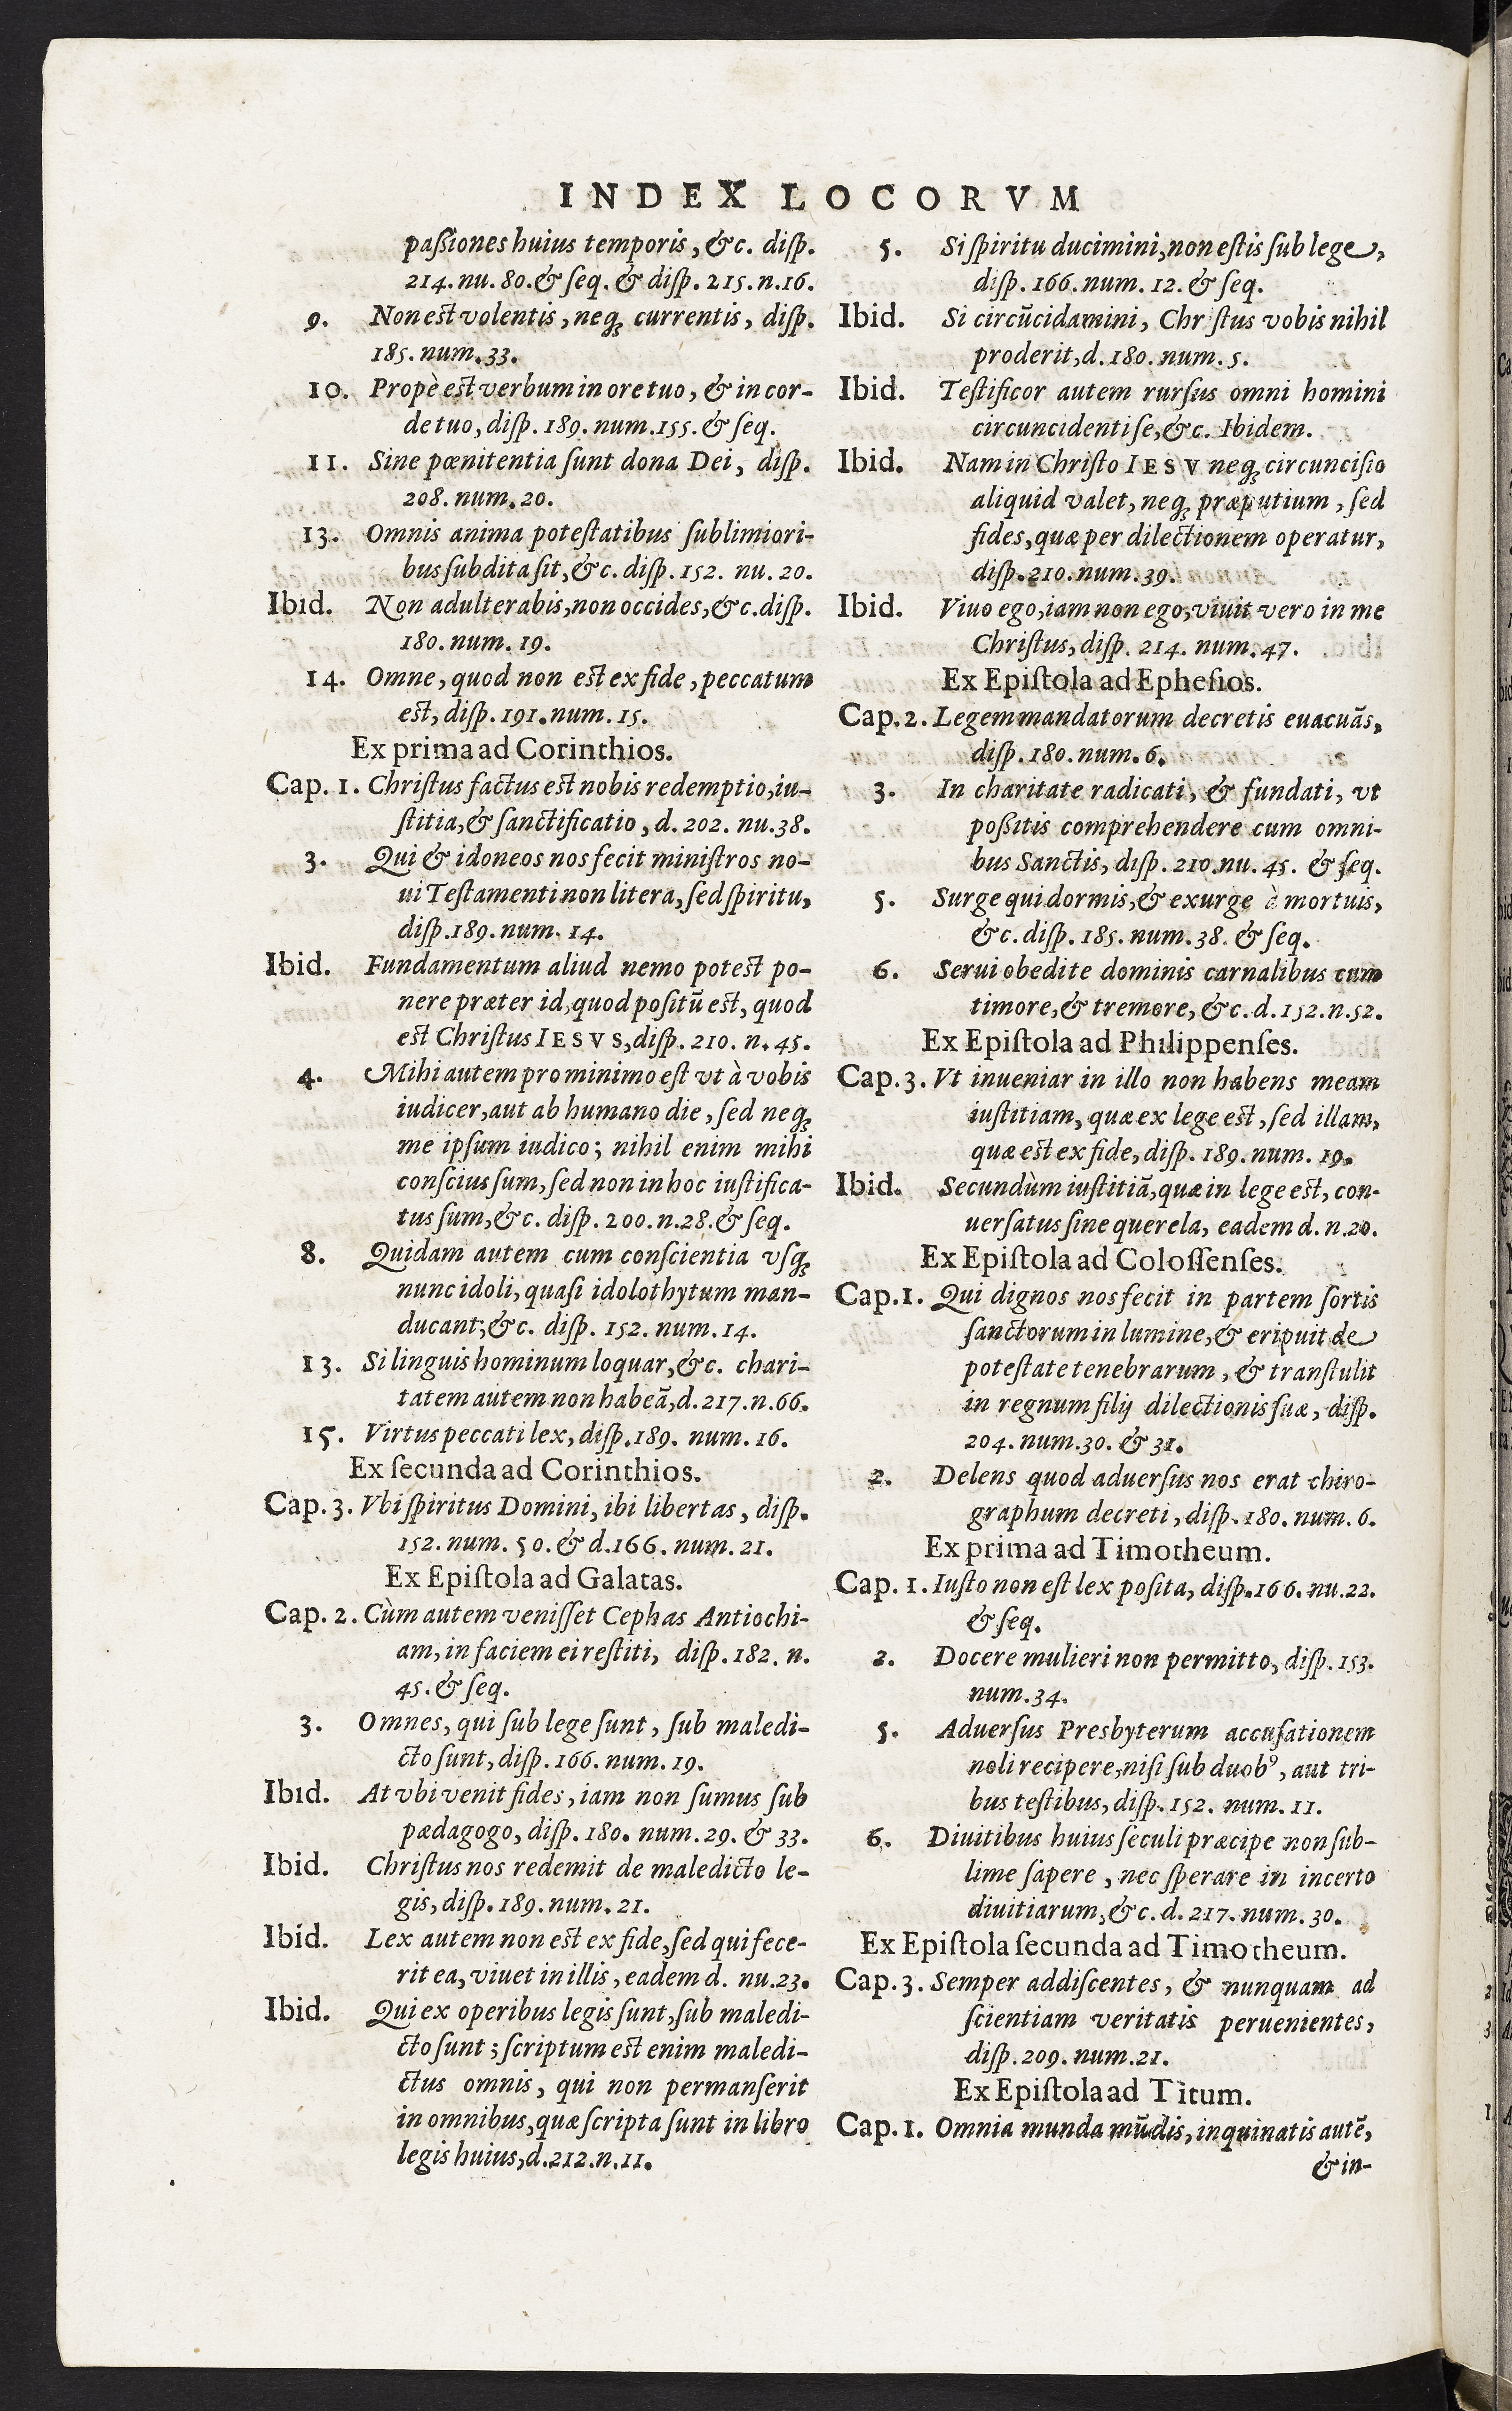 INDEX LOCORVM
paſsiones huius temporis, &c. diſp.
214. nu. 80. & ſeq. & diſp. 215. n. 16.
9. Non est volentis, neq; currentis, diſp.
185. num. 33.
10. Propè est verbum in ore tuo, & in cor-
de tuo, diſp. 189. num. 155. & ſeq.
11. Sine pœnitentia ſunt dona Dei, diſp.
208. num. 20.
13. Omnis anima poteſtatibus ſublimiori-
bus ſubdita ſit, &c. diſp. 152. nu. 20.
Ibid. Non adulterabis, non occides, &c. diſp.
180. num. 19.
14. Omne, quod non est ex fide, peccatum
est, diſp. 191. num. 15.
Ex prima ad Corinthios.
Cap. 1. Chriſtus factus est nobis redemptio, iu-
ſtitia, & ſanctificatio, d. 202. nu. 38.
3. Qui & idoneos nos fecit miniſtros no-
ui Teſtamenti non litera, ſed ſpiritu,
diſp. 189. num. 14.
Ibid. Fundamentum aliud nemo potest po-
nere præter id, quod poſitũ est, quod
est Chriſtus IESVS, diſp. 210. n. 45.
4. Mihi autem pro minimo eſt vt à vobis
iudicer, aut ab humano die, ſed neq;
me ipſum iudico; nihil enim mihi
conſcius ſum, ſed non in hoc iuſtifica-
tus ſum, &c. diſp. 200. n. 28. & ſeq.
8. Quidam autem cum conſcientia vſq;
nunc idoli, quaſi idolothytum man-
ducant, &c. diſp. 152. num. 14.
13. Si linguis hominum loquar, &c. chari-
tatem autem non habeã, d. 217. n. 66.
15. Virtus peccati lex, diſp. 189. num. 16.
Ex ſecunda ad Corinthios.
Cap. 3. Vbi ſpiritus Domini, ibi libertas, diſp.
152. num. 50. & d. 166. num. 21.
Ex Epiſtola ad Galatas.
Cap. 2. Cùm autem veniſſet Cephas Antiochi-
am, in faciem ei reſtiti, diſp. 182. n.
45. & ſeq.
3. Omnes, qui ſub lege ſunt, ſub maledi-
cto ſunt, diſp. 166. num. 19.
Ibid. At vbi venit fides, iam non ſumus ſub
pædagogo, diſp. 180. num. 29. & 33.
Ibid. Chriſtus nos redemit de maledicto le-
gis, diſp. 189. num. 21.
Ibid. Lex autem non est ex fide, ſed qui fece-
rit ea, viuet in illis, eadem d. nu. 23.
Ibid. Qui ex operibus legis ſunt, ſub maledi-
cto ſunt; ſcriptum est enim maledi-
ctus omnis, qui non permanſerit
in omnibus, quæ ſcripta ſunt in libro
legis huius, d. 212. n. 11.
5. Si ſpiritu ducimini, non eſtis ſub lege,
diſp. 166. num. 12. & ſeq.
Ibid. Si circũcidamini, Chr ſtus vobis nihil
proderit, d. 180. num. 5.
Ibid. Teſtificor autem rurſus omni homini
circuncidenti ſe, &c. Ibidem.
Ibid. Nam in Chriſto IESV neq; circunciſio
aliquid valet, neq; præputium, ſed
fides, quæ per dilectionem operatur,
diſp. 210. num. 39.
Ibid. Viuo ego, iam non ego, viuit vero in me
Chriſtus, diſp. 214. num. 47.
Ex Epiſtola ad Epheſios.
Cap. 2. Legem mandatorum decretis euacuãs,
diſp. 180. num. 6.
3. In charitate radicati, & fundati, vt
poſsitis comprehendere cum omni-
bus Sanctis, diſp. 210. nu. 45. & ſeq.
5. Surge qui dormis, & exurge à mortuis,
&c. diſp. 185. num. 38. & ſeq.
6. Serui obedite dominis carnalibus cum
timore, & tremore, &c. d. 152. n. 52.
Ex Epiſtola ad Philippenſes.
Cap. 3. Vt inueniar in illo non habens meam
iuſtitiam, quæ ex lege est, ſed illam,
quæ est ex fide, diſp. 189. num. 19.
Ibid. Secundùm iuſtitiã, quæ in lege est, con-
uerſatus ſine querela, eadem d. n. 20.
Ex Epiſtola ad Coloſſenſes.
Cap. 1. Qui dignos nos fecit in partem ſortis
ſanctorum in lumine, & eripuit de
poteſtate tenebrarum, & tranſtulit
in regnum filij dilectionis ſuæ, diſp.
204. num. 30. & 31.
2. Delens quod aduerſus nos erat chiro-
graphum decreti, diſp. 180. num. 6.
Ex prima ad Timotheum.
Cap. 1. Iuſto non eſt lex poſita, diſp. 166. nu. 22.
& ſeq.
2. Docere mulieri non permitto, diſp. 153.
num. 34.
5. Aduerſus Presbyterum accuſationem
noli recipere, niſi ſub duobꝰ, aut tri-
bus teſtibus, diſp. 152. num. 11.
6. Diuitibus huius ſeculi præcipe non ſub-
lime ſapere, nec ſperare in incerto
diuitiarum, &c. d. 217. num. 30.
Ex Epiſtola ſecunda ad Timotheum.
Cap. 3. Semper addiſcentes, & nunquam ad
ſcientiam veritatis peruenientes,
diſp. 209. num. 21.
Ex Epiſtola ad Titum.
Cap. 1. Omnia munda mũdis, inquinatis autẽ,
& in-